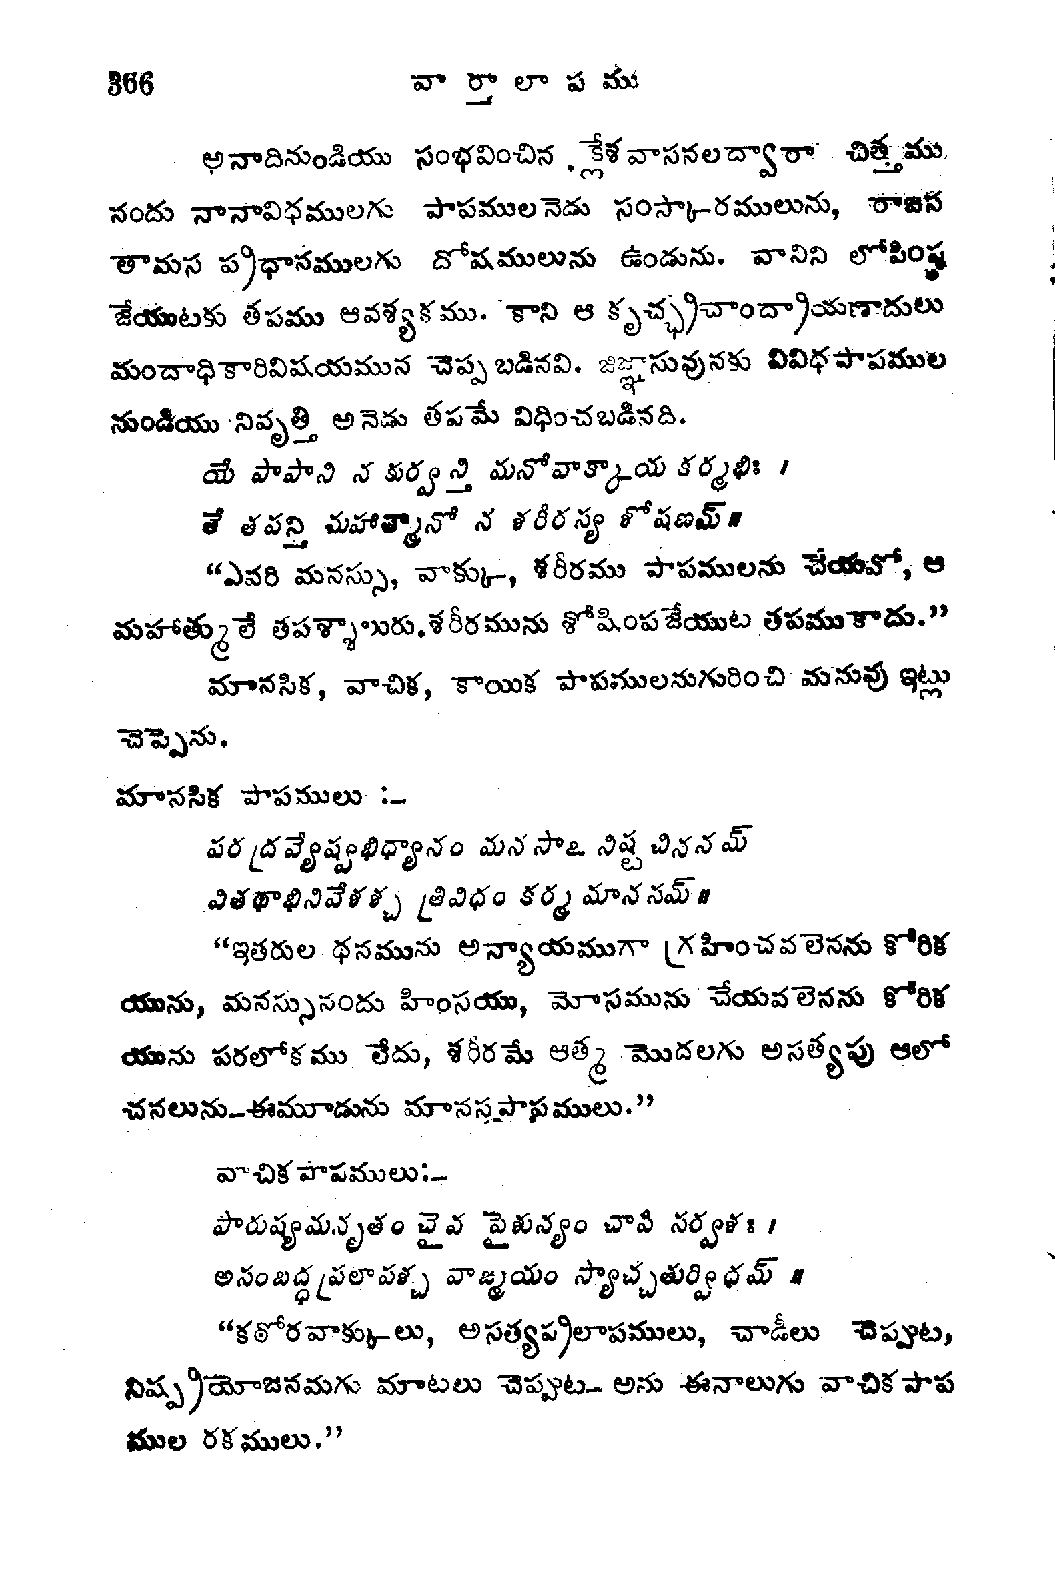 366 వార్తాలాపము
అనాదినుండియు సంభవించిన క్లేశవాసనలద్వారా చిత్తము
నందు నానావిధములగు పాపములనెడు సంస్కారములును, రాజస
తామస ప్రధానములగు దోషములును ఉండును. వానిని లోపింప
జేయుటకు తపము ఆవశ్యకము. కాని ఆ కృచ్ఛ్రచాంద్రాయణాదులు
మందాధికారివిషయమున చెప్పబడినవి. జిజ్ఞాసువునకు వివిధపాపముల
నుండియు నివృత్తి అనెడు తపమే విధించబడినది.
యే పాపాని న కుర్వన్తి మనోవాక్కాయ కర్మభిః ।
తే తపన్తి మహాత్మానో న శరీరస్య శోషణమ్॥
“ఎవరి మనస్సు, వాక్కు, శరీరము పాపములను చేయవో, ఆ
మహాత్ములే తపశ్శాలురు.శరీరమును శోషింపజేయుట తపముకాదు.”
మానసిక, వాచిక, కాయిక పాపములనుగురించి మనువు ఇట్లు
చెప్పెను.
మానసిక పాపములు :–
పరద్రవ్యేష్వభిధ్యానం మనసాఽనిష్టచిననమ్
వితథాభినివేశశ్చ త్రివిధం కర్మ మానసమ్॥
“ఇతరుల ధనమును అన్యాయముగా గ్రహించవలెనను కోరిక
యును, మనస్సునందు హింసయు, మోసమును చేయవలెనను కోరిక
యును పరలోకము లేదు, శరీరమే ఆత్మ మొదలగు అసత్యపు ఆలో
చనలును–ఈమూడును మానసపాపములు.”
వాచికపాపములు:–
పారుష్యమనృతం చైవ పైశున్యం చాపి సర్వశః ।
అసంబద్ధప్రలాపశ్చ వాఙ్మయం స్యాచ్చతుర్విధమ్ ॥
“కఠోరవాక్కులు, అసత్యప్రలాపములు, చాడీలు చెప్పుట,
నిష్ప్రయోజనమగు మాటలు చెప్పుట– అను ఈనాలుగు వాచికపాప
ముల రకములు.”